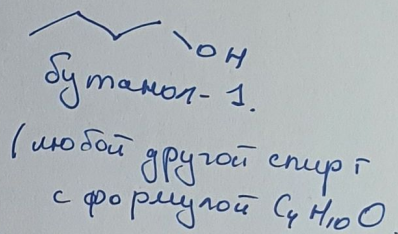 OH
бутанол-1.
(любой другой спирт
с формулой C₄H₁₀O